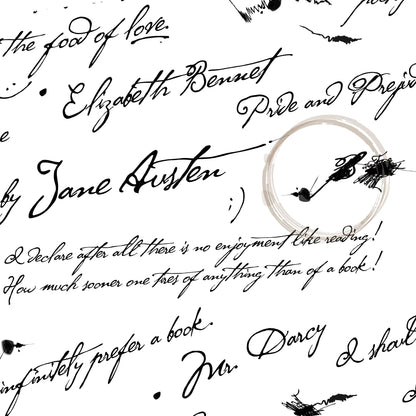 the food of love.
Elizabeth Bennet
Pride and Prejud
e
by Jane Austen
;)
I declare after all there is no enjoyment like reading!
How much sooner one tires of anything than of a book!
infinitely prefer a book.
Mr. Darcy
I shall